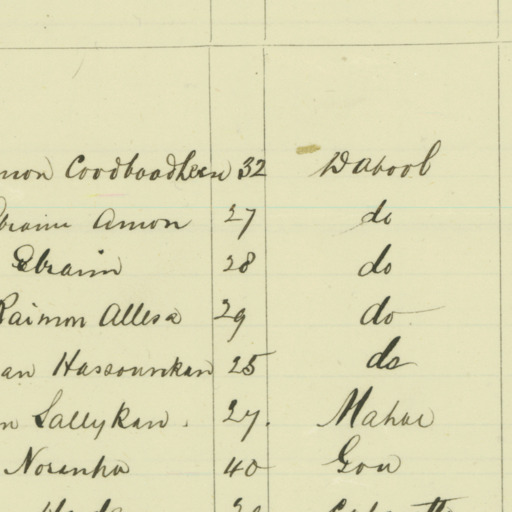 mon Coodbaadheen 32 Dabool
braim Amon 27 do
Ebraim 28 do
Raimon Allesa 29 do
an Hassounkan 25 do
n Sallykan. 27. Mahae
Noranha 40 Goa